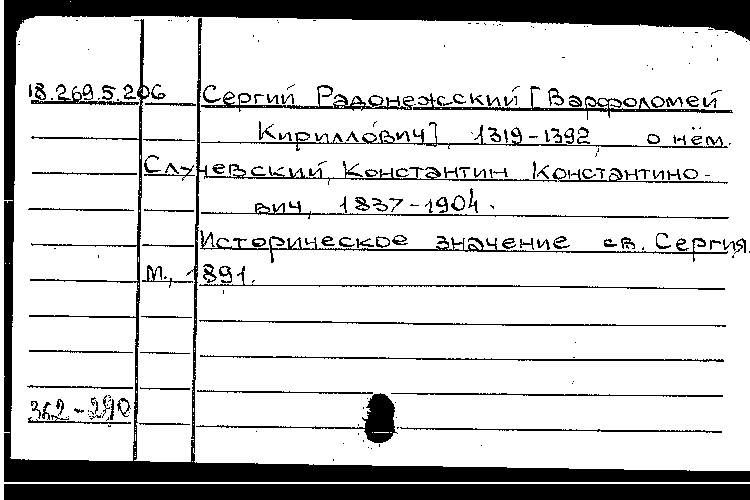 18.269.5.206 Сергий Радонежский [Варфоломей
Кириллович], 1319-1392, о нём.
Случевский, Константин Константино-
вич, 1837-1904.
Историческое значение св. Сергия.
М., 1891.
362-290